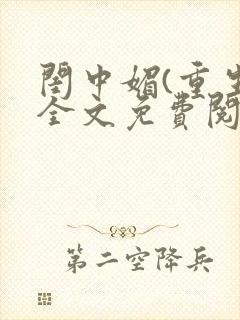 閨中媚(重生
全文免費閱
第二空降兵